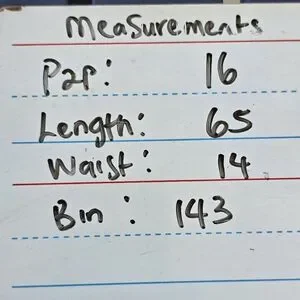 Measurements
P2P: 16
Length: 65
Waist: 14
Bin: 143